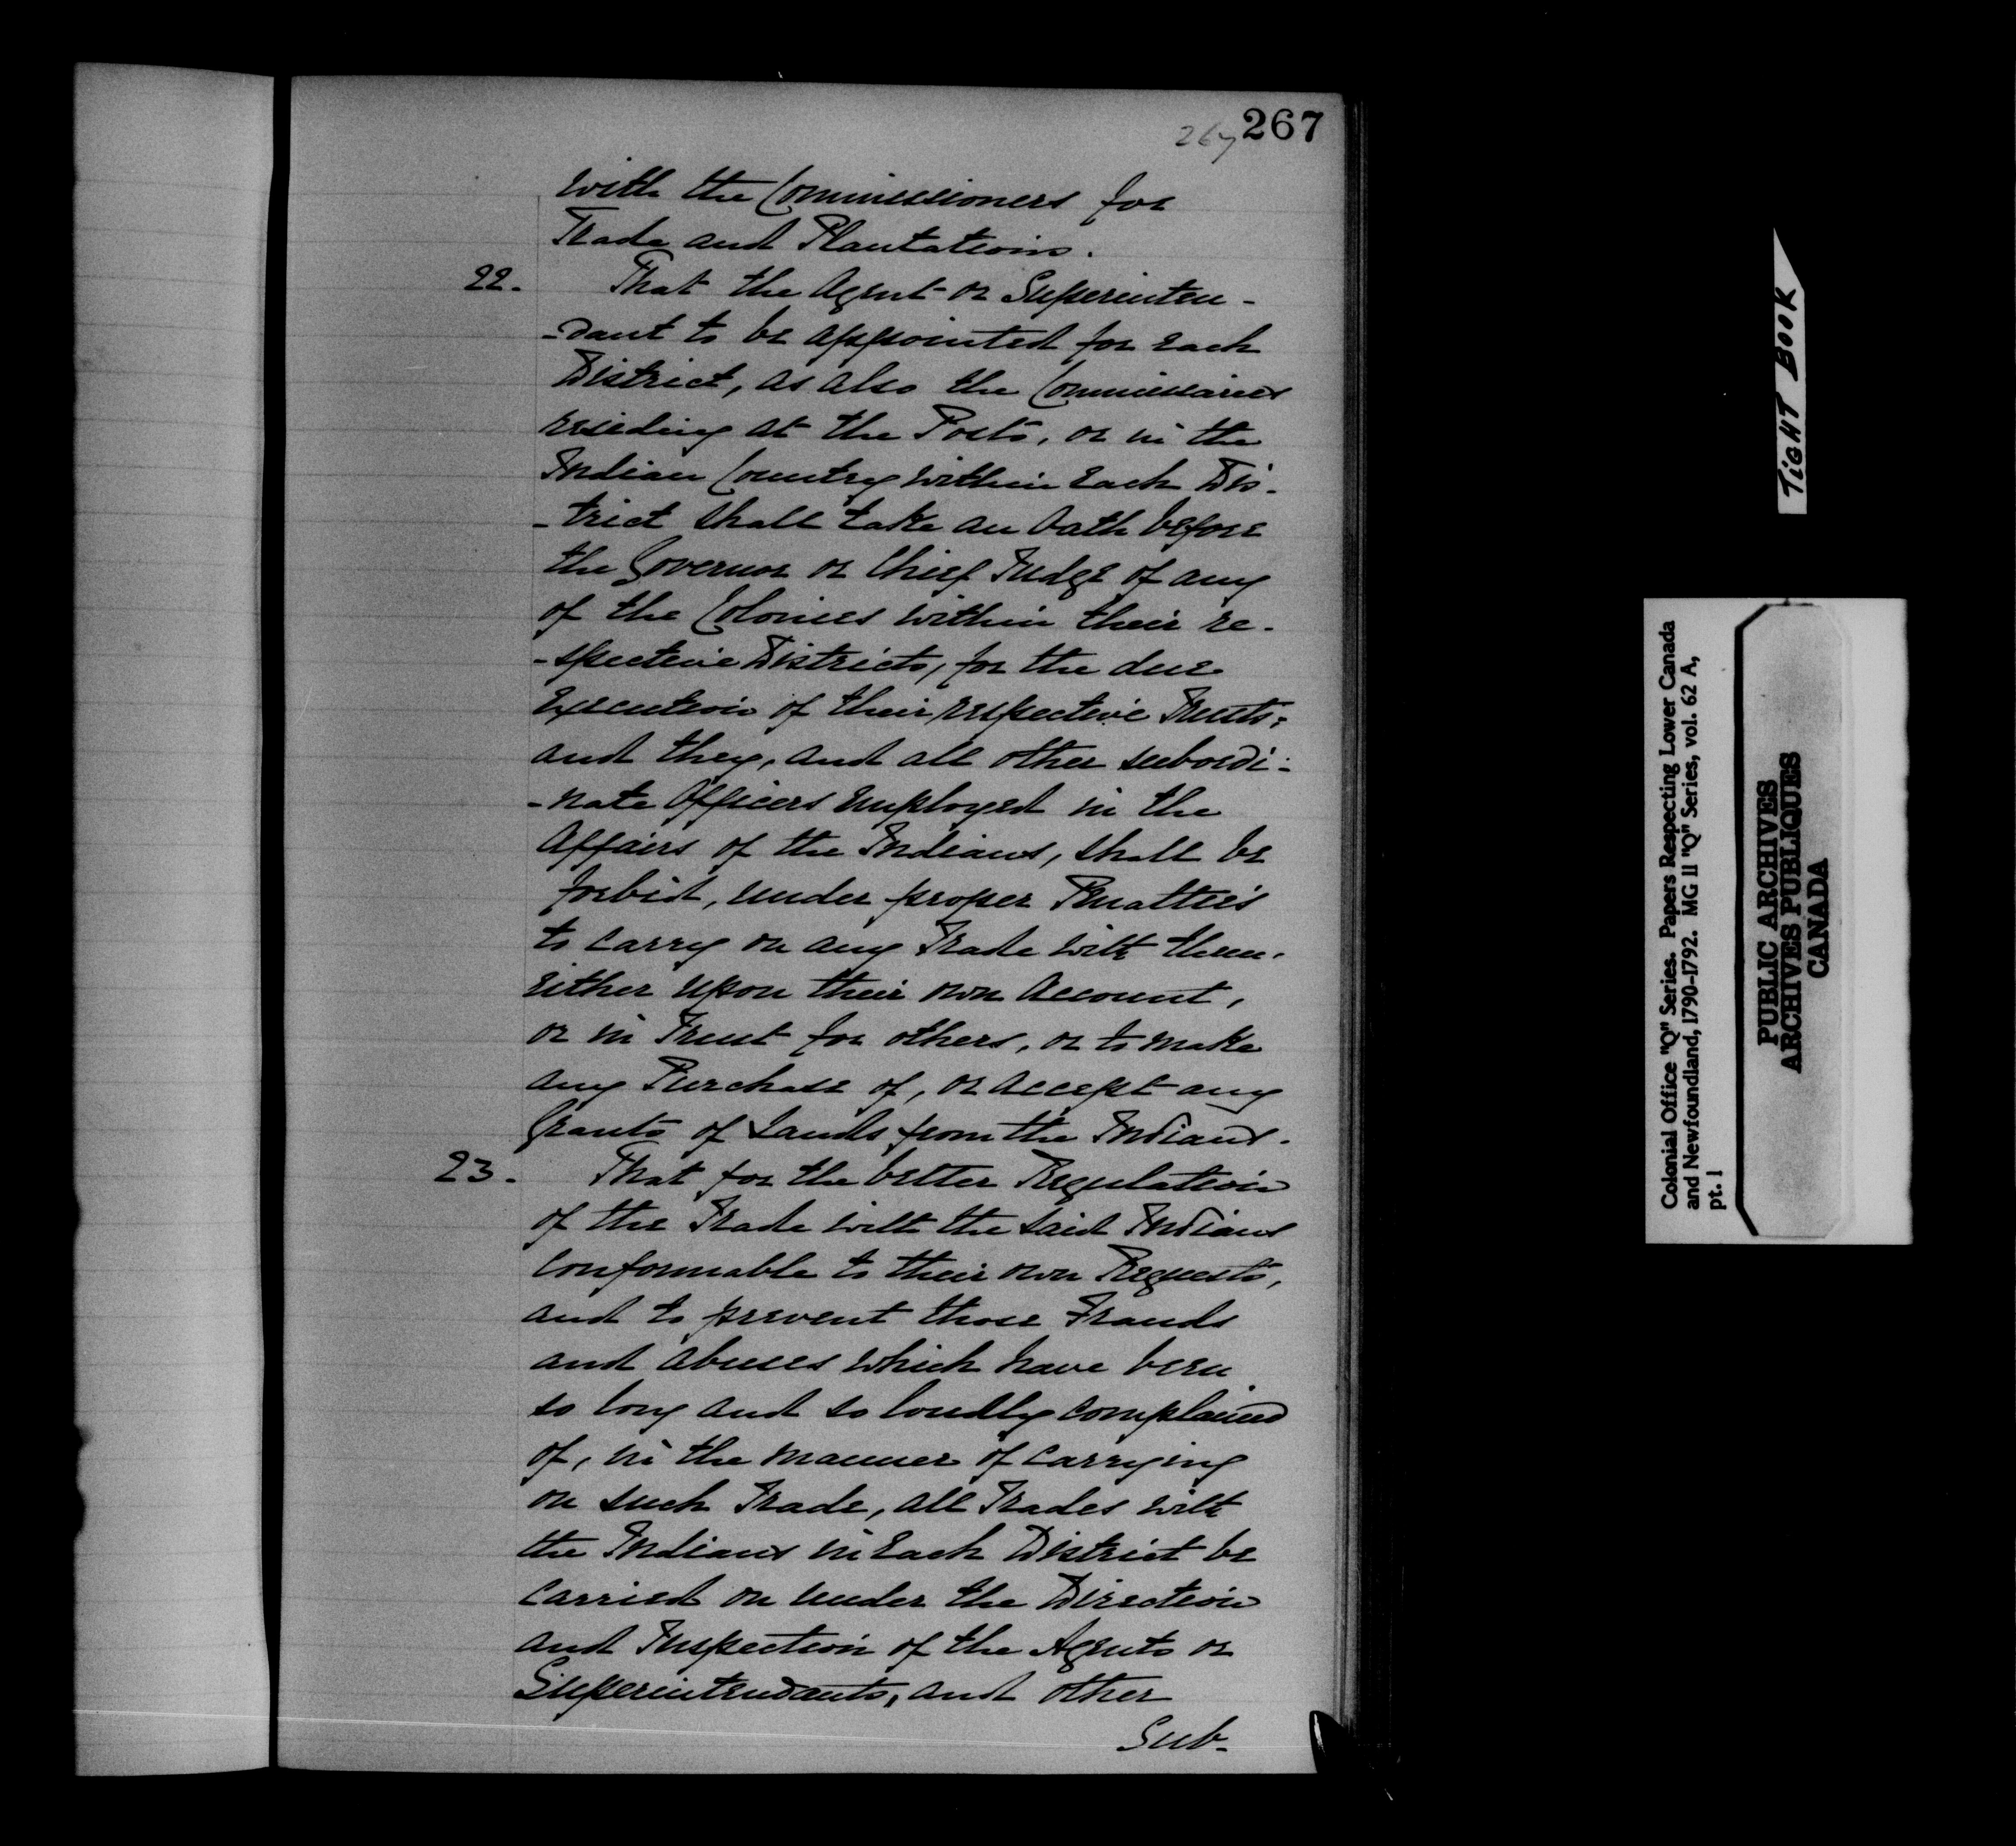 267 267
with the Commissioners for
Trade and Plantations.
22. That the Agent or Superinten-
-dant to be appointed for each
District, as also the Commissaries
residing at the Posts, or in the
Indian Country within each Dis-
-trict shall take an Oath before
the Governor or Chief Judge of any
of the Colonies within their re-
-spective Districts, for the due
Execution of their respective Trusts;
and they, and all other subordi-
-nate Officers employed in the
Affairs of the Indians, shall be
forbid, under proper Penalties
to carry on any Trade with them,
either upon their own Account,
or in Trust for others, or to make
any Purchase of, or accept any
Grants of Lands from the Indians.
23. That for the better Regulation
of the Trade with the said Indians
conformable to their own Requests,
and to prevent those Frauds
and Abuses which have been
so long and so loudly complained
of, in the manner of carrying
on such Trade, all Trades with
the Indians in each District be
carried on under the Direction
and Inspection of the Agents or
Superintendants, and other
Sub-
TIGHT BOOK
Colonial Office "Q" Series. Papers Respecting Lower Canada
and Newfoundland, 1790-1792. MG 11 "Q" Series, vol. 62 A,
pt. 1
PUBLIC ARCHIVES
ARCHIVES PUBLIQUES
CANADA